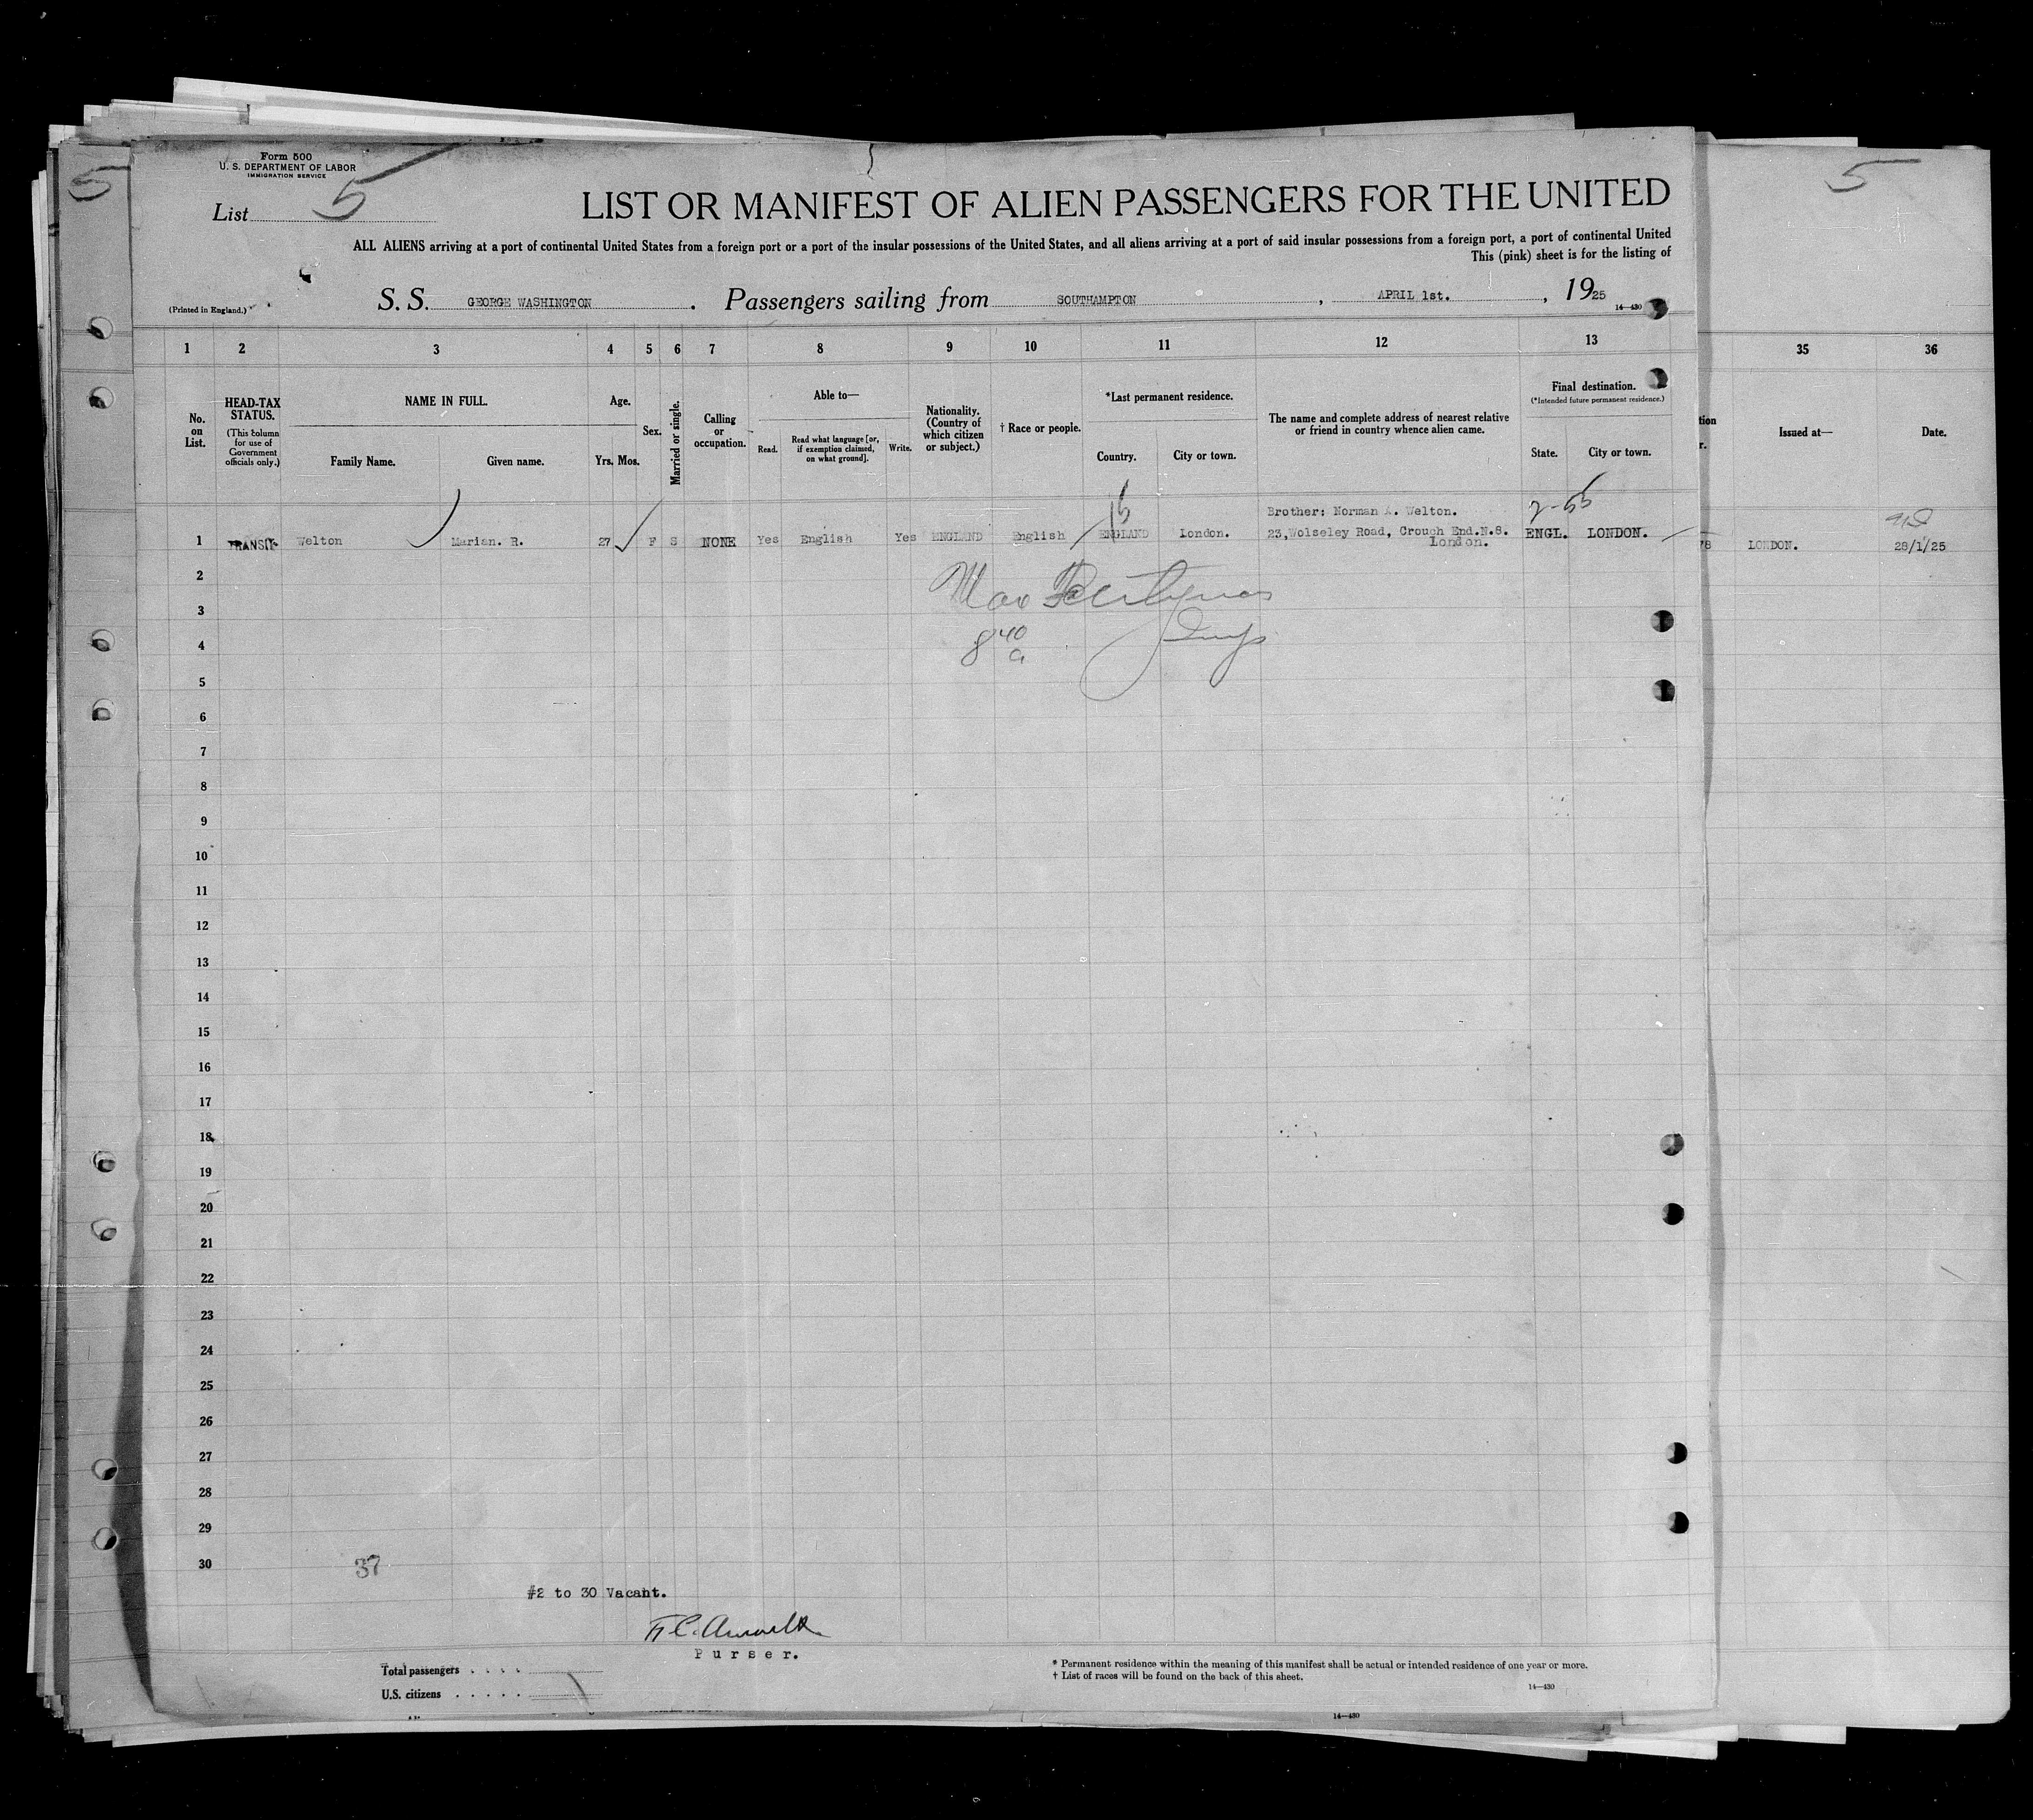 Form 500
U. S. DEPARTMENT OF LABOR
IMMIGRATION SERVICE
5
List 5
5
LIST OR MANIFEST OF ALIEN PASSENGERS FOR THE UNITED
ALL ALIENS arriving at a port of continental United States from a foreign port or a port of the insular possessions of the United States, and all aliens arriving at a port of said insular possessions from a foreign port, a port of continental United
This (pink) sheet is for the listing of
(Printed in England.)
S. S. GEORGE WASHINGTON. Passengers sailing from SOUTHAMPTON, APRIL 1st., 1925
14—430
1 2 3 4 5 6 7 8 9 10 11 12 13 35 36
No. on List.
HEAD-TAX STATUS.
(This column for use of Government officials only.)
NAME IN FULL.
Family Name. Given name.
Age.
Yrs. Mos.
Sex.
Married or single.
Calling or occupation.
Able to—
Read. Read what language [or, if exemption claimed, on what ground]. Write.
Nationality. (Country of which citizen or subject.)
† Race or people.
*Last permanent residence.
Country. City or town.
The name and complete address of nearest relative or friend in country whence alien came.
Final destination.
(*Intended future permanent residence.)
State. City or town.
Issued at— Date.
Brother: Norman A. Welton.
1 TRANSIT Welton Marian. R. 27 F S NONE Yes English Yes ENGLAND English ENGLAND London. 23,Wolseley Road, Crouch End.N.8. ENGL. LONDON. 78 LONDON. 28/1/25
London.
2
3
8 40 a
4
5
6
7
8
9
10
11
12
13
14
15
16
17
18
19
20
21
22
23
24
25
26
27
28
29
30
37
#2 to 30 Vacant.
Purser.
Total passengers . . . .
U.S. citizens . . . . .
* Permanent residence within the meaning of this manifest shall be actual or intended residence of one year or more.
† List of races will be found on the back of this sheet.
14—430
14—430